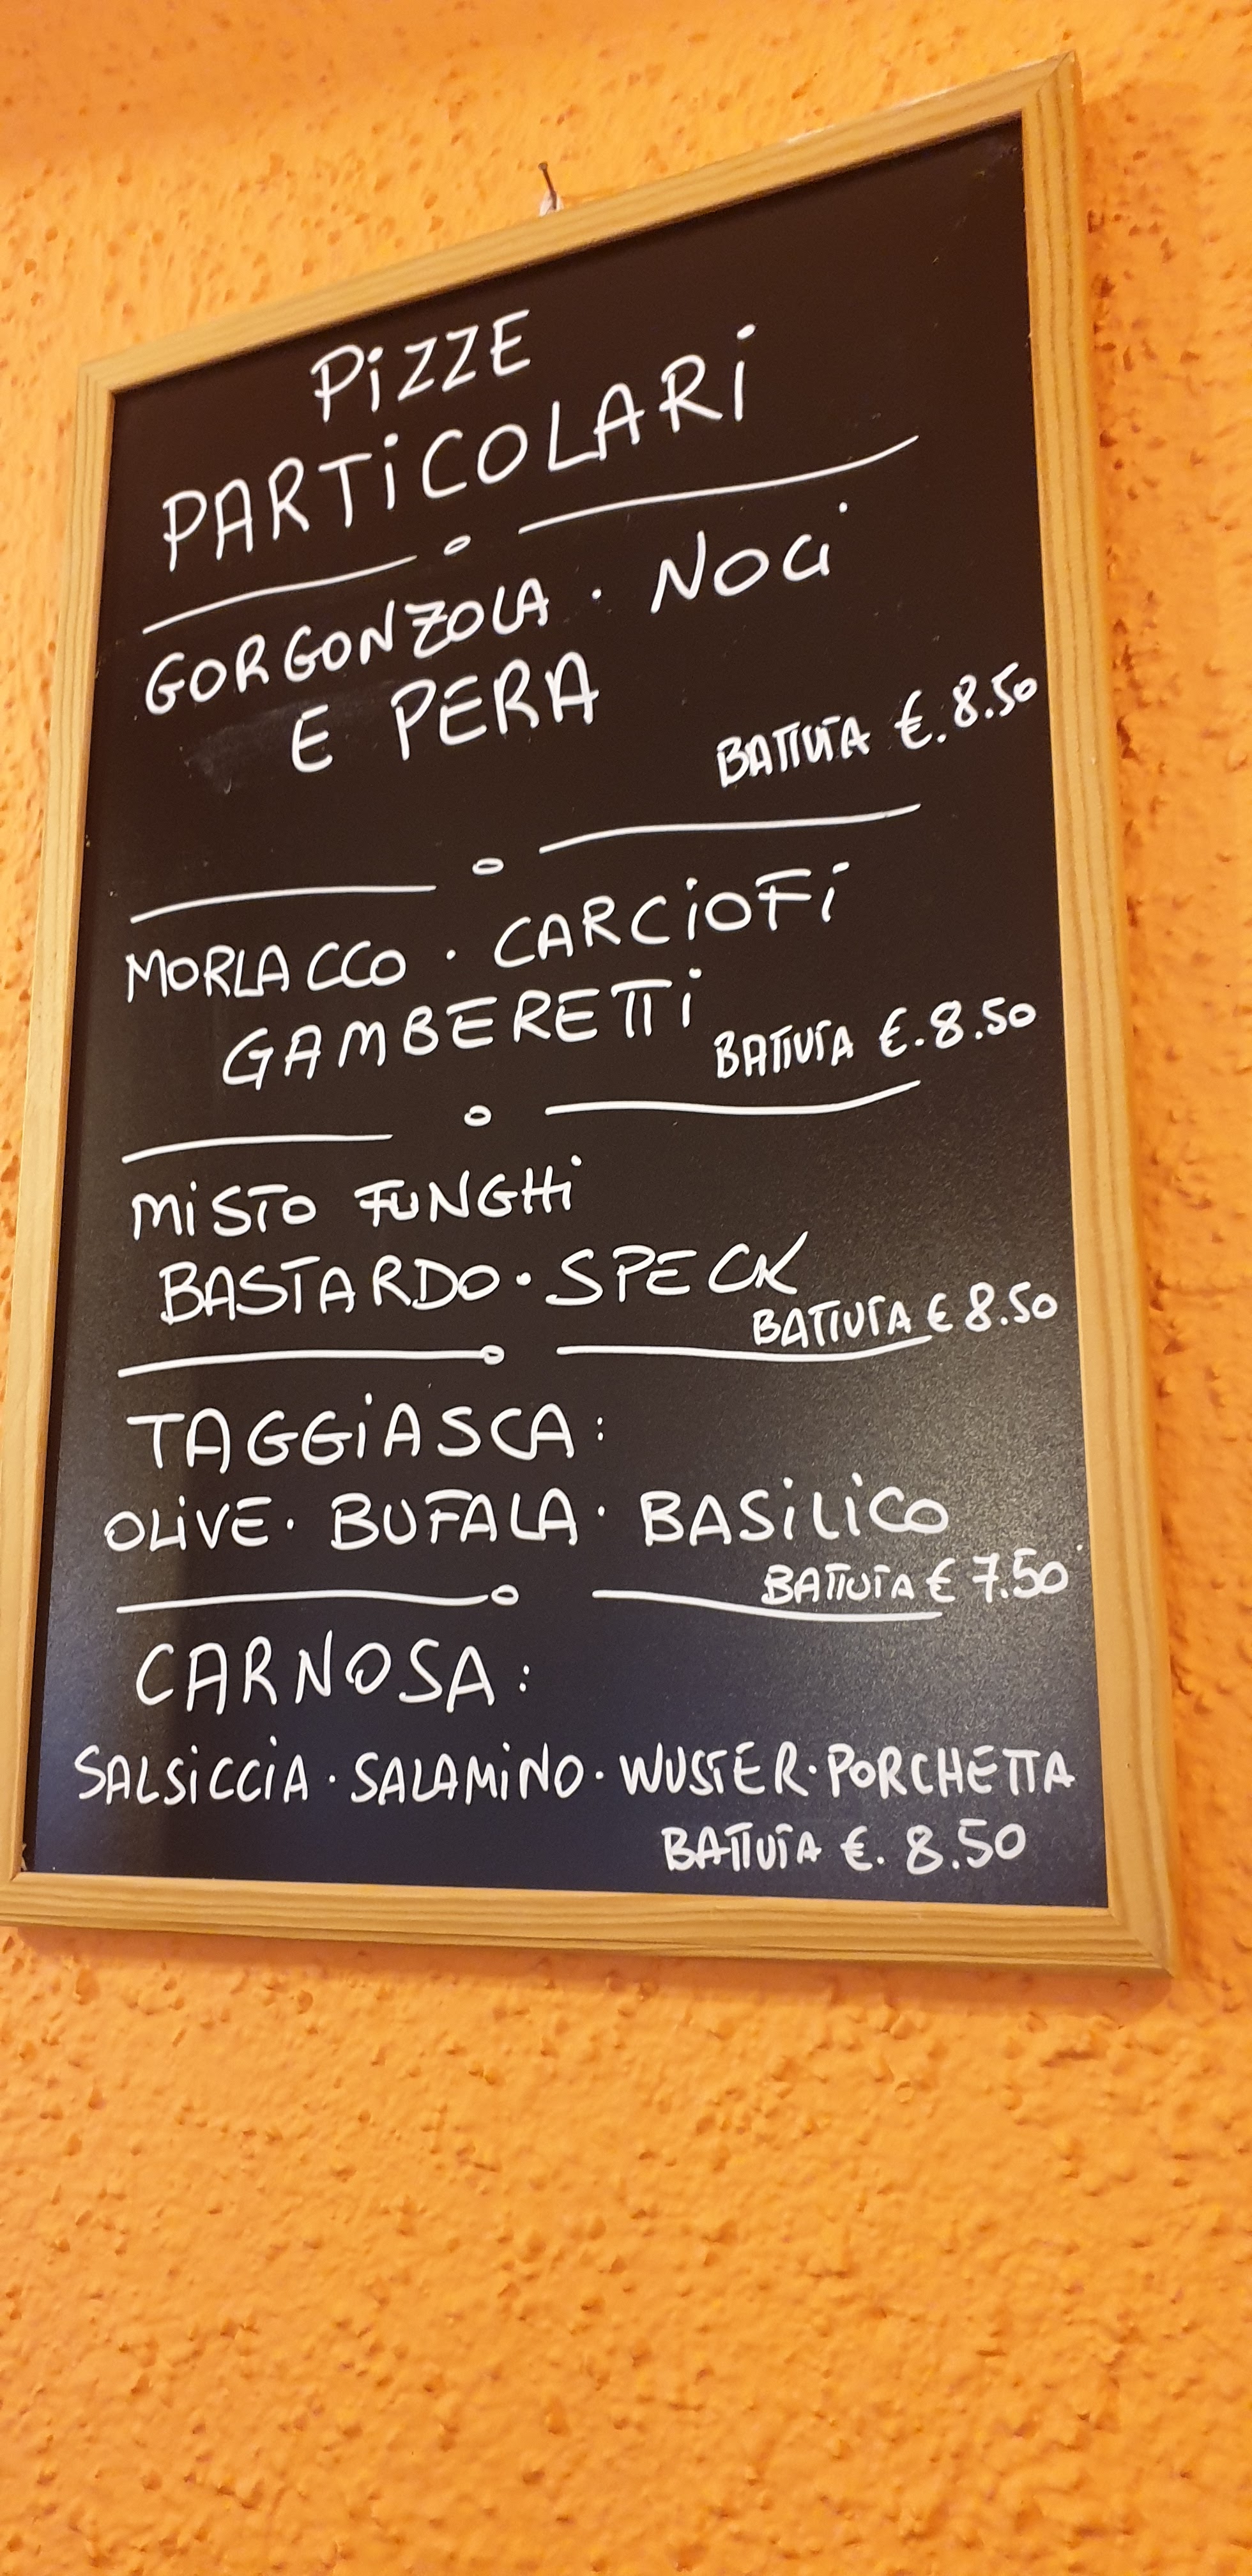 PiZZE
PARTiCOLARi
GORGONZOLA · NOCi
E PERA
BATTUTA €. 8.50
MORLACCO · CARCiOFi
GAMBERETTi
BATTUTA €. 8.50
MiSTO FUNGHi
BASTARDO · SPECK
BATTUTA € 8.50
TAGGiASCA:
OLiVE · BUFALA · BASiLiCO
BATTUTA € 7.50
CARNOSA:
SALSiCCiA · SALAMiNO · WUSTER · PORCHETTA
BATTUTA €. 8.50